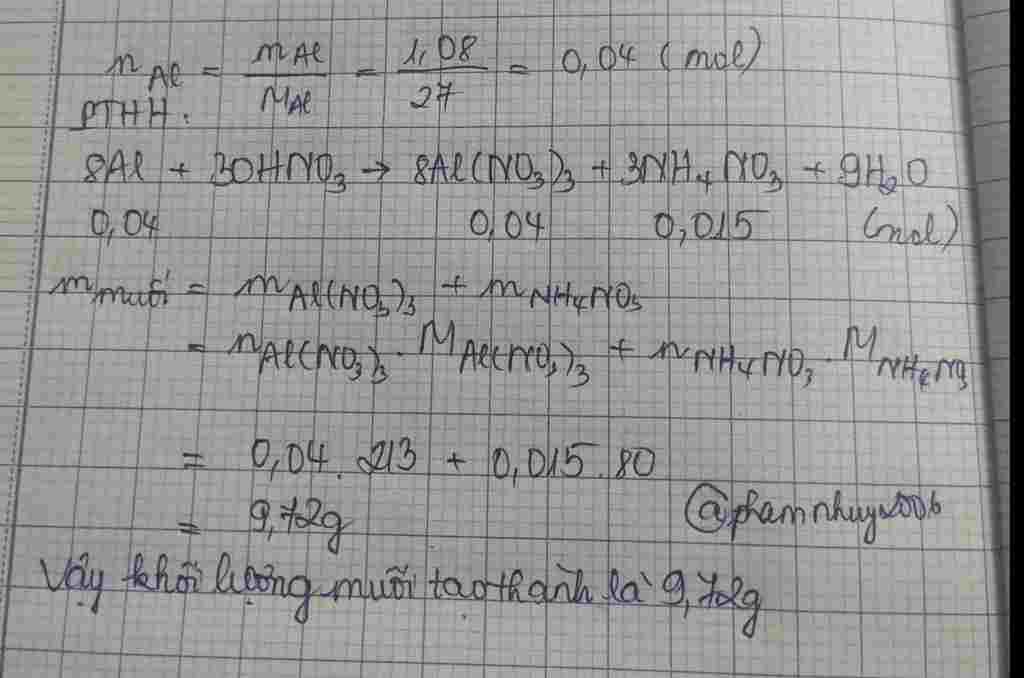 n Al = m Al / M Al = 1,08 / 27 = 0,04 (mol)
PTHH:
8Al + 30HNO3 → 8Al(NO3)3 + 3NH4NO3 + 9H2O
0,04 0,04 0,015 (mol)
m muối = m Al(NO3)3 + m NH4NO3
= n Al(NO3)3 . M Al(NO3)3 + n NH4NO3 . M NH4NO3
= 0,04 . 213 + 0,015 . 80
= 9,72g
@phamnhuy2006
Vậy khối lượng muối tạo thành là 9,72g